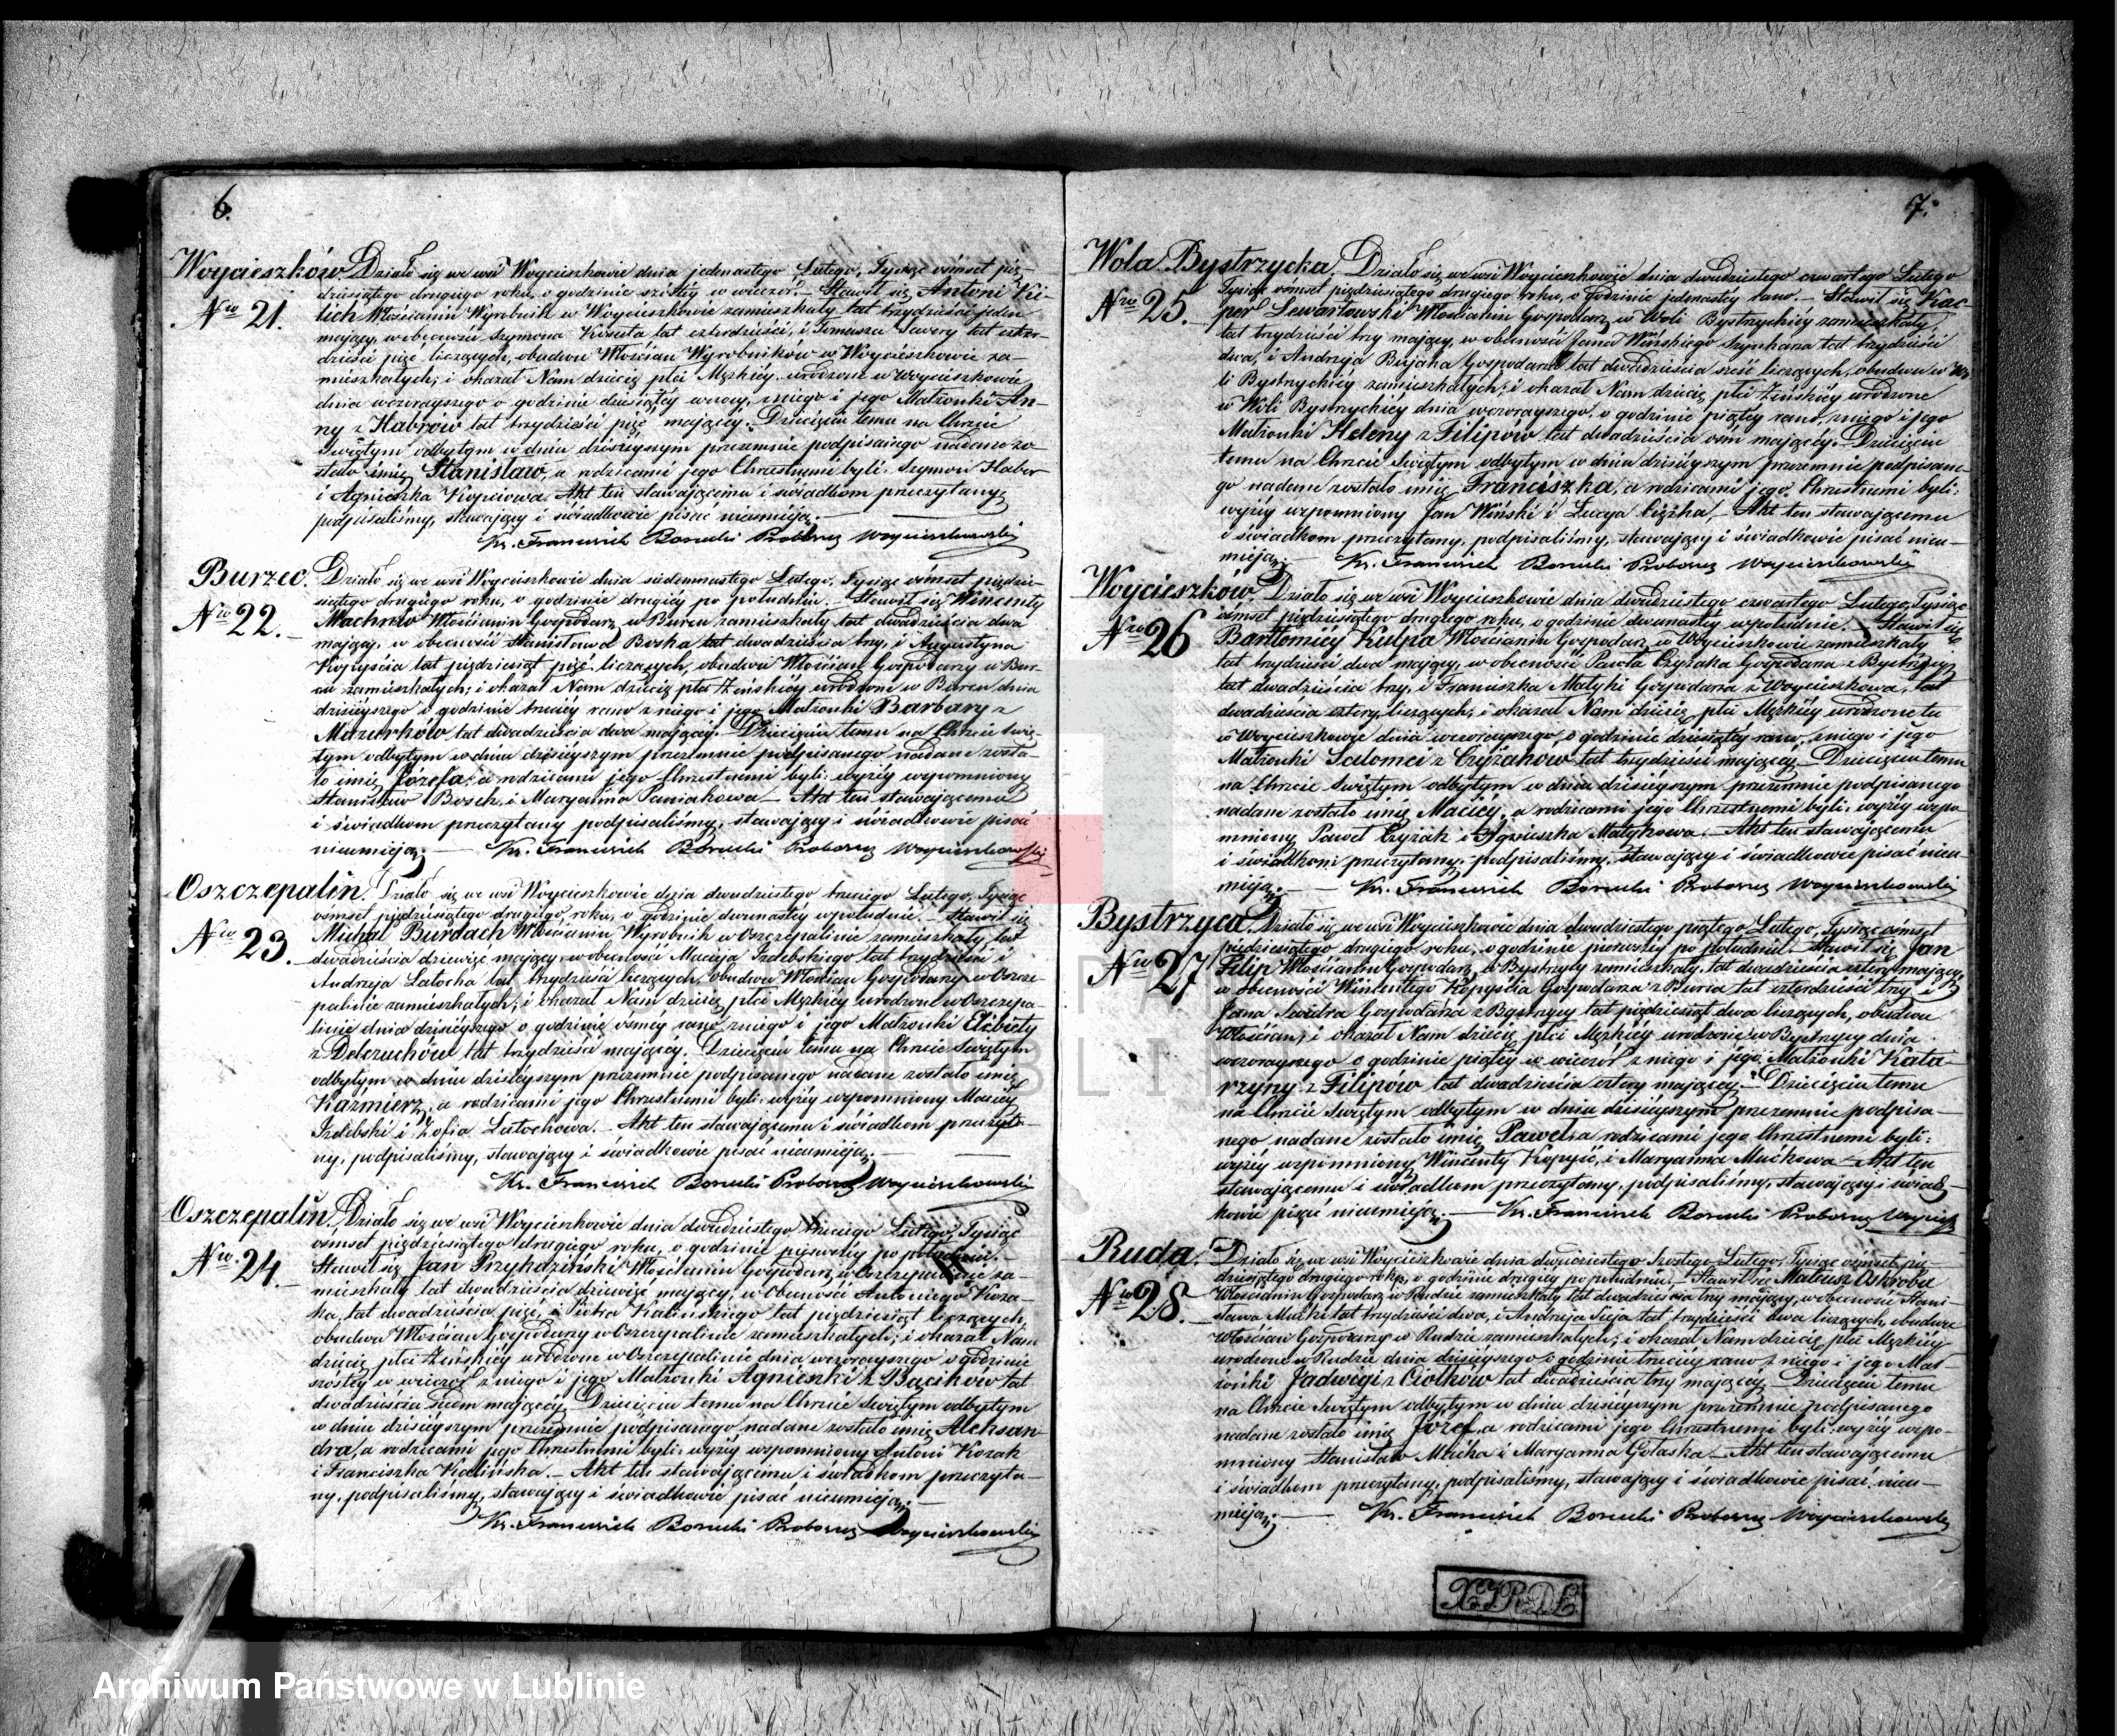 6.
Woycieszków. Działo się we wsi Woycieszkowie dnia jedenastego Lutego, Tysiąc ośmset pięć-
Nro 21. dziesiątego drugiego roku, o godzinie szóstey w wieczór. Stawił się Antoni
Włościanin Wyrobnik w Woycieszkowie zamieszkały lat trzydzieści jeden
mający, w obecności Szymona lat czterdzieści, i Tomasza lat czter-
dzieści pięć liczących, obudwu Włościan Wyrobników w Woycieszkowie za-
mieszkałych; i okazał Nam dziecię płci Męzkiéy urodzone w Woycieszkowie
dnia wczorayszego o godzinie dziesiątey w nocy, z niego i jego Małżonki An-
ny z Habrów lat trzydzieści pięć mającéy. Dziecięciu temu na Chrzcie
Świętym odbytym w dniu dzisiéyszym przezemnie podpisanego nadane zo-
stało imię Stanisław, a rodzicami jego Chrzestnemi byli: Szymon Haber
i Agnieszka Kopciowa. Akt ten stawaiącemu i świadkom przeczytany
podpisaliśmy, stawający i świadkowie pisać nieumieją.
Xs. Franciszek Borucki Proboszcz Woycieszkowski
Burzec. Działo się we wsi Woycieszkowie dnia siedemnastego Lutego, Tysiąc ośmset pięćdzie-
Nro 22. siątego drugiego roku, o godzinie drugiéy po południu. Stawił się Wincenty
Machnio Włościanin Gospodarz w Burcu zamieszkały lat dwadzieścia dwa
mający, w obecności Stanisława Boska lat dwadzieścia trzy, i Augustyna
Kopyścia lat pięćdziesiąt pięć liczących, obudwu Włościan Gospodarzy w Bur-
cu zamieszkałych; i okazał Nam dziecię płci Żeńskiéy urodzone w Burcu dnia
dzisiéyszego o godzinie trzeciéy rano z niego i jego Małżonki Barbary z
Mazurków lat dwadzieścia dwa mającéy. Dziecięciu temu na Chrzcie Świę-
tym odbytym w dniu dzisiéyszym przezemnie podpisanego nadane zosta-
ło imię Józefa, a rodzicami jego Chrzestnemi byli: wyżéy wspomniony
Stanisław Bosek, i Maryanna Paniakowa. Akt ten stawającemu
i świadkom przeczytany podpisaliśmy, stawający i świadkowie pisać
nieumieją. Xs. Franciszek Borucki Proboszcz Woycieszkowski
Oszczepalin. Działo się we wsi Woycieszkowie dnia dwudziestego trzeciego Lutego, Tysiąc
Nro 23. ośmset pięćdziesiątego drugiego roku, o godzinie dwunastéy w południe. Stawił się
Michał Burdach Włościanin Wyrobnik w Oszczepalinie zamieszkały, lat
dwadzieścia dziewięć mający, w obecności Macieja Izdebskiego lat trzydzieści i
Andrzeja Latocha lat trzydzieści liczących, obudwu Włościan Gospodarzy w Oszcze-
palinie zamieszkałych; i okazał Nam dziecię płci Męzkiéy urodzone w Oszczepa-
linie dnia dzisiéyszego o godzinie ósméy rano z niego i jego Małżonki Elżbiety
z Delczuchów lat trzydzieści mającéy. Dziecięciu temu na Chrzcie Świętym
odbytym w dniu dzisiéyszym przezemnie podpisanego nadane zostało imię
Kazmierz, a rodzicami jego Chrzestnemi byli: wyżéy wspomniony Maciey
Izdebski i Zofia Latochowa. Akt ten stawającemu i świadkom przeczyta-
ny, podpisaliśmy, stawający i świadkowie pisać nieumieją.
Xs. Franciszek Borucki Proboszcz Woycieszkowski
Oszczepalin. Działo się we wsi Woycieszkowie dnia dwudziestego trzeciego Lutego, Tysiąc
Nro 24. ośmset pięćdziesiątego drugiego roku, o godzinie pierwszéy po południu.
Stawił się Jan Przyhdziński Włościanin Gospodarz w Oszczepalinie za-
mieszkały lat dwadzieścia dziewięć mający, w obecności Antoniego Koza-
ka, lat dwadzieścia pięć, i Piotra Kalińskiego lat pięćdziesiąt liczących,
obudwu Włościan Gospodarzy w Oszczepalinie zamieszkałych; i okazał Nam
dziecię płci Żeńskiéy urodzone w Oszczepalinie dnia wczorayszego o godzinie
szóstéy w wieczór z niego i jego Małżonki Agnieszki z Bącików lat
dwadzieścia siedm mającéy. Dziecięciu temu na Chrzcie Świętym odbytym
w dniu dzisiéyszym przezemnie podpisanego, nadane zostało imię Aleksan-
dra, a rodzicami jego Chrzestnemi byli: wyżéy wspomniony Antoni Kozak
i Franciszka Kalińska. Akt ten stawającemu i świadkom przeczyta-
ny, podpisaliśmy, stawający i świadkowie pisać nieumieją.
Xs. Franciszek Borucki Proboszcz Woycieszkowski
7.
Wola Bystrzycka. Działo się we wsi Woycieszkowie dnia dwudziestego czwartego Lutego
Nro 25. Tysiąc ośmset pięćdziesiątego drugiego roku, o godzinie jedenastéy rano. Stawił się Kac-
per Lewartowski Włościanin Gospodarz w Woli Bystrzyckiéy zamieszkały,
lat trzydzieści trzy mający, w obecności Jana Wińskiego lat trzydzieści
dwa, i Andrzeja Bujaka Gospodarza lat dwadzieścia sześć liczących, obudwu w Wo-
li Bystrzyckiéy zamieszkałych; i okazał Nam dziecię płci Żeńskiéy urodzone
w Woli Bystrzyckiéy dnia wczorayszego, o godzinie piątéy rano, z niego i jego
Małżonki Heleny z Filipów lat dwadzieścia osm mającéy. Dziecięciu
temu na Chrzcie Świętym odbytym w dniu dzisiéyszym przezemnie podpisane-
go nadane zostało imię Franciszka, a rodzicami jego Chrzestnemi byli:
wyżéy wspomniony Jan Wiński i Łucya Ciężka. Akt ten stawającemu
i świadkom przeczytany, podpisaliśmy, stawający i świadkowie pisać nieu-
mieją. Xs. Franciszek Borucki Proboszcz Woycieszkowski
Woycieszków. Działo się we wsi Woycieszkowie dnia dwudziestego czwartego Lutego, Tysiąc
Nro 26 ośmset pięćdziesiątego drugiego roku, o godzinie dwunastéy w południe. Stawił się
Bartłomiéy Kulpa Włościanin Gospodarz w Woycieszkowie zamieszkały
lat trzydzieści dwa mający, w obecności Pawła Czyżaka Gospodarza z Bystrzycy,
lat dwadzieścia trzy, i Franciszka Matyki Gospodarza z Woycieszkowa, lat
dwadzieścia cztery liczących; i okazał Nam dziecię płci Męzkiéy urodzone tu
w Woycieszkowie dnia wczorayszego o godzinie dziesiątéy rano, z niego i jego
Małżonki Salomei z Czyżaków lat trzydzieści mającéy. Dziecięciu temu
na Chrzcie Świętym odbytym w dniu dzisiéyszym przezemnie podpisanego
nadane zostało imię Maciéy, a rodzicami jego Chrzestnemi byli: wyżéy wspo-
mniony Paweł Czyżak i Agnieszka Matykowa. Akt ten stawającemu
i świadkom przeczytany, podpisaliśmy, stawający i świadkowie pisać nieu-
mieją. Xs. Franciszek Borucki Proboszcz Woycieszkowski
Bystrzyca. Działo się we wsi Woycieszkowie dnia dwudziestego piątego Lutego, Tysiąc ośmset
Nro 27 pięćdziesiątego drugiego roku, o godzinie pierwszéy po południu. Stawił się Jan
Filip Włościanin Gospodarz, w Bystrzycy zamieszkały, lat dwadzieścia cztery mający,
w obecności Wincentego Kopyścia Gospodarza z Burca lat czterdzieści trzy i
Jana Gospodarza z Bystrzycy lat pięćdziesiąt dwa liczących, obudwu
Włościan; i okazał Nam dziecię płci Męzkiéy urodzone w Bystrzycy dnia
wczorayszego o godzinie piątéy w wieczór z niego i jego Małżonki Kata-
rzyny z Filipów lat dwadzieścia cztery mającéy. Dziecięciu temu
na Chrzcie Świętym odbytym w dniu dzisiéyszym przezemnie podpisa-
nego nadane zostało imię Paweł, a rodzicami jego Chrzestnemi byli:
wyżéy wspomniony Wincenty Kopyść, i Maryanna Mućkowa. Akt ten
stawającemu i świadkom przeczytany, podpisaliśmy, stawający i świad-
kowie pisać nieumieją. Xs. Franciszek Borucki Proboszcz Woyciesz
Ruda. Działo się we wsi Woycieszkowie dnia dwudziestego szóstego Lutego, Tysiąc ośmset pięć-
Nro 28. dziesiątego drugiego roku, o godzinie drugiéy po południu. Stawił się Mateusz Oskroba
Włościanin Gospodarz w Rudzie zamieszkały lat dwadzieścia trzy mający, w obecności Stani-
sława Mućki lat trzydzieści dwa, i Andrzeja lat trzydzieści dwa liczących, obudwu
Włościan Gospodarzy w Rudzie zamieszkałych; i okazał Nam dziecię płci Męzkiéy
urodzone w Rudzie dnia dzisiéyszego o godzinie trzeciéy rano z niego i jego Mał-
żonki Jadwigi z Ciołków lat dwadzieścia trzy mającéy. Dziecięciu temu
na Chrzcie Świętym odbytym w dniu dzisiéyszym przezemnie podpisanego
nadane zostało imię Józef, a rodzicami jego Chrzestnemi byli: wyżéy wspo-
mniony Stanisław Mućka i Maryanna Gołaska. Akt ten stawającemu
i świadkom przeczytany, podpisaliśmy, stawający i świadkowie pisać nieu-
mieją. Xs. Franciszek Borucki Proboszcz Woycieszkowski
Archiwum Państwowe w Lublinie